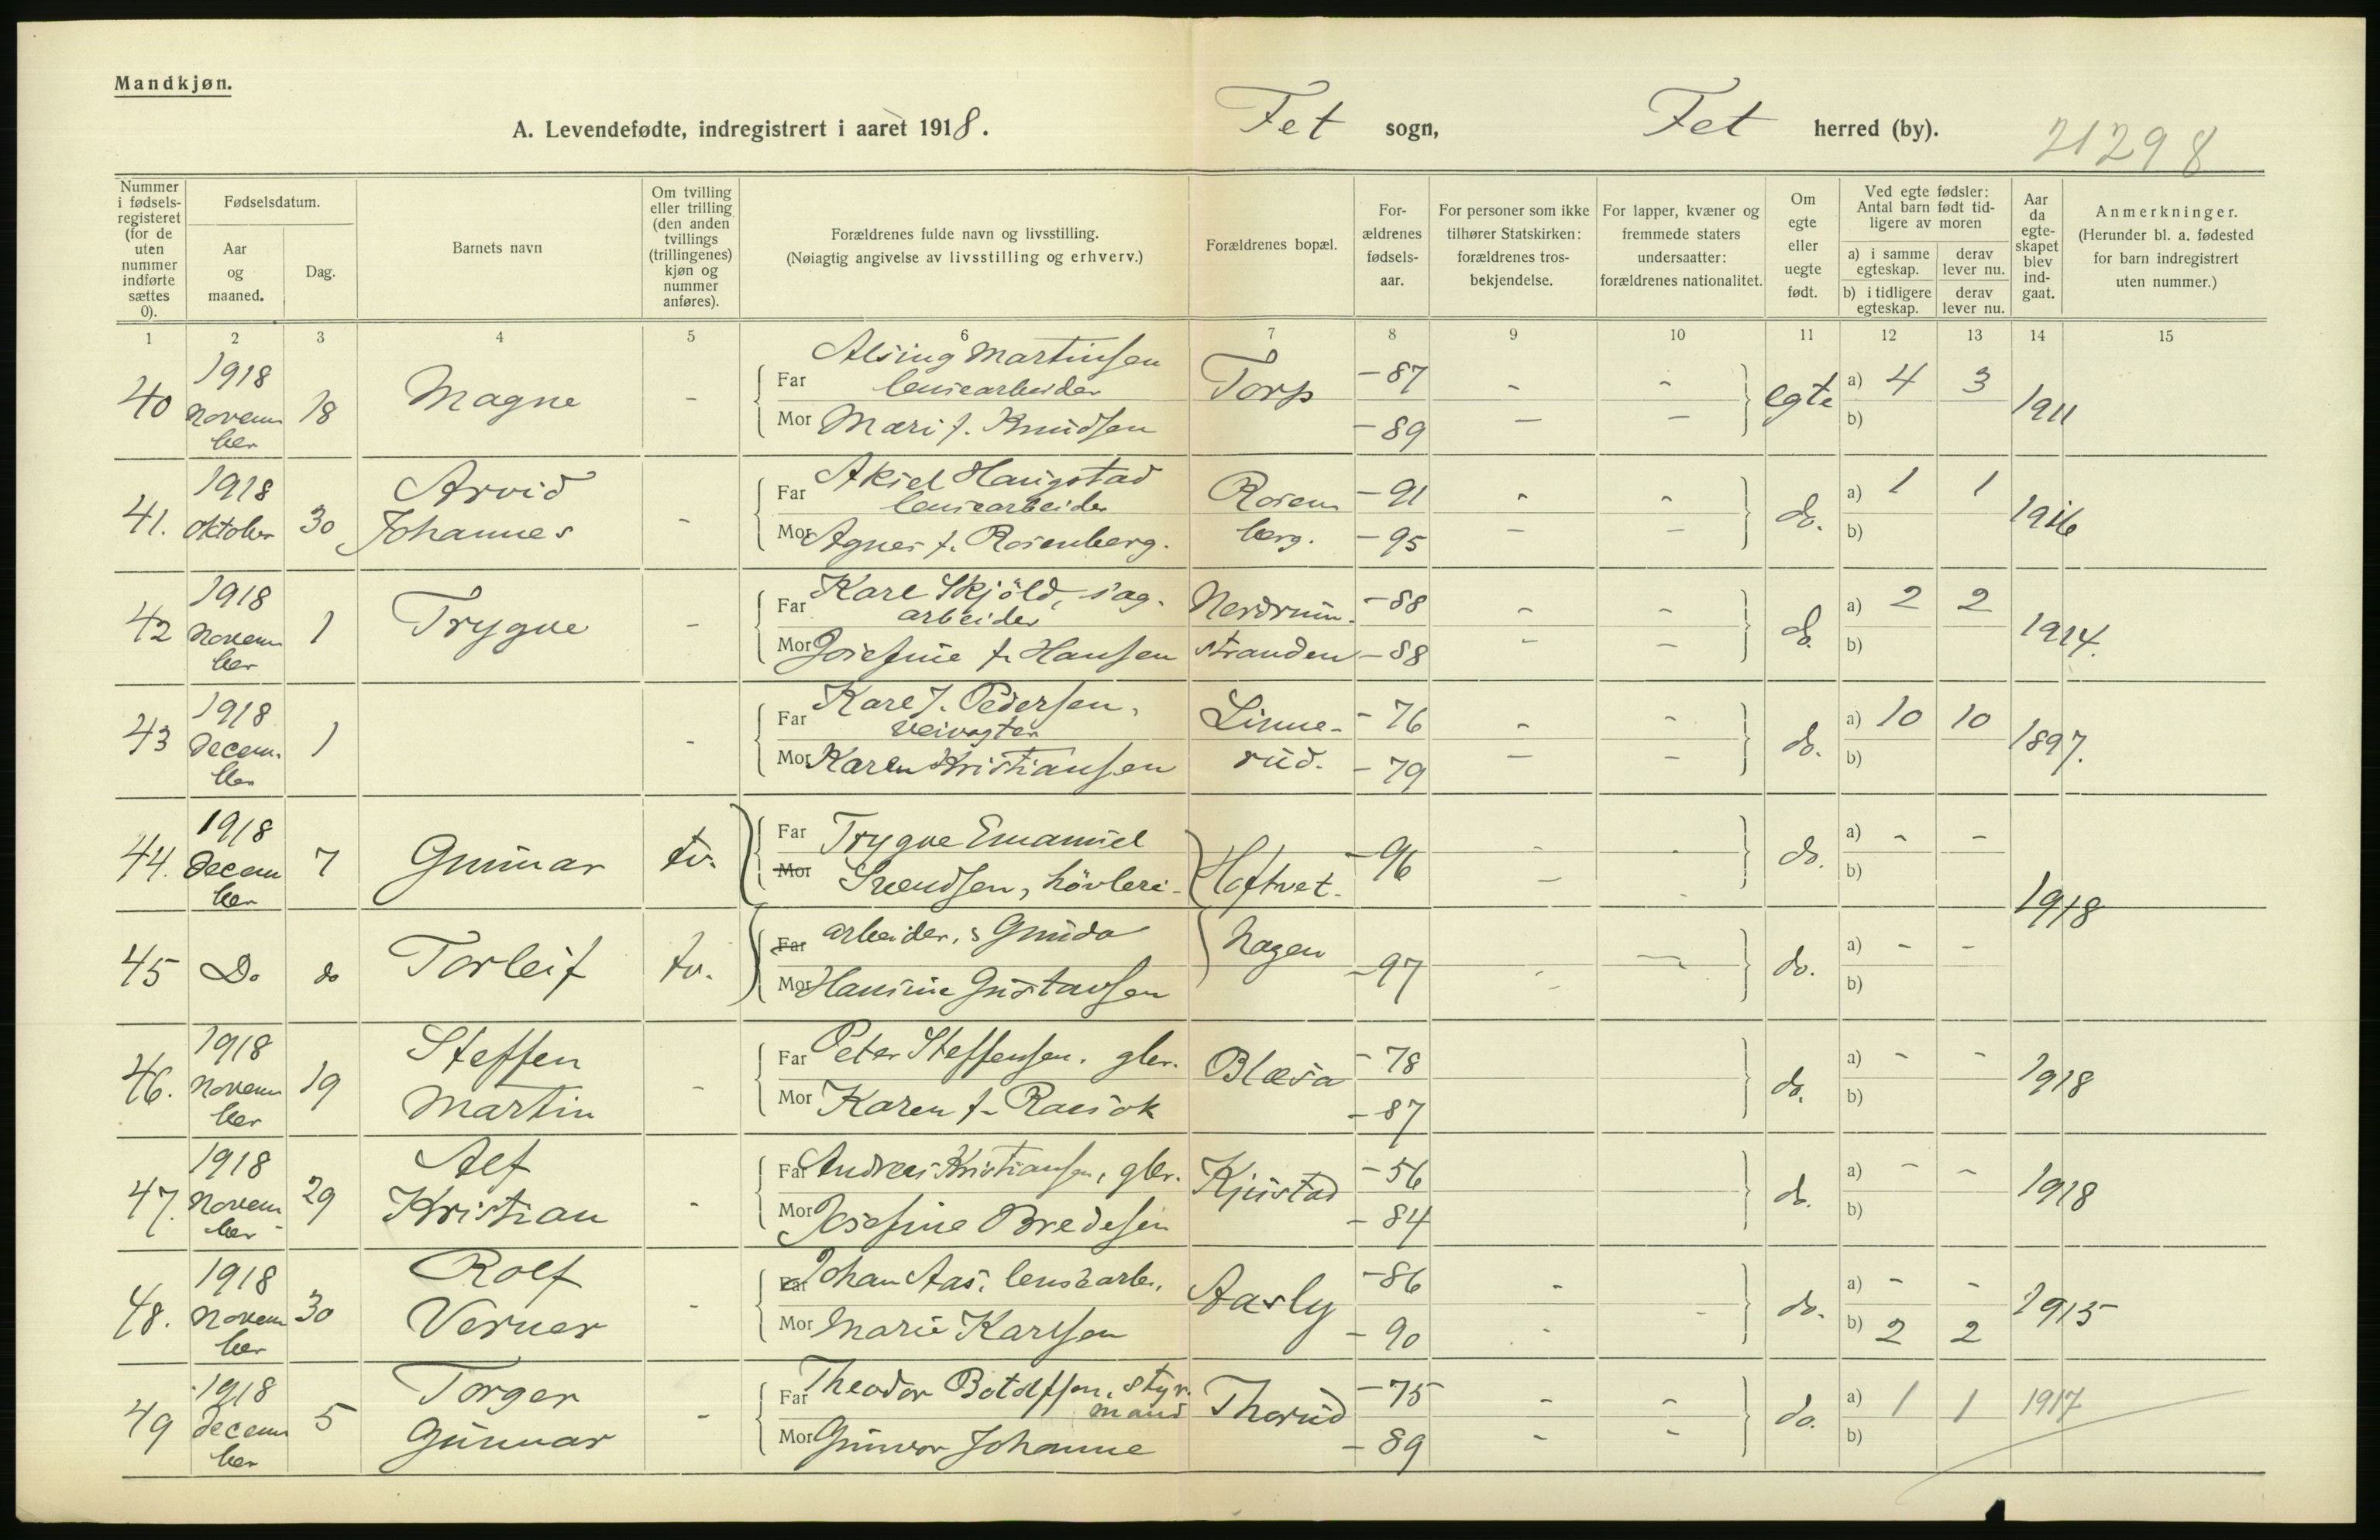 Mandkjøn.
A. Levendefødte, indregistrert i aaret 1918. Fet sogn, Fet herred (by). 21298
Nummer i fødselsregisteret (for de uten nummer indførte sættes 0).
Fødselsdatum.
Aar og maaned.
Dag.
Barnets navn
Om tvilling eller trilling (den anden tvillings (trillingenes) kjøn og nummer anføres).
Forældrenes fulde navn og livsstilling.
(Nøiagtig angivelse av livsstilling og erhverv.)
Forældrenes bopæl.
Forældrenes fødselsaar.
For personer som ikke tilhører Statskirken: forældrenes trosbekjendelse.
For lapper, kvæner og fremmede staters undersaatter: forældrenes nationalitet.
Om egte eller uegte født.
Ved egte fødsler: Antal barn født tidligere av moren
a) i samme egteskap. derav lever nu.
b) i tidligere egteskap. derav lever nu.
Aar da egteskapet blev indgaat.
Anmerkninger.
(Herunder bl. a. fødested for barn indregistrert uten nummer.)
1 2 3 4 5 6 7 8 9 10 11 12 13 14 15
40 1918 Novem ber 18 Magne - Far Alsing Martinsen lensearbeider Torp -87 - - egte a) 4 3 1911
Mor Mari f. Knudsen -89 - - b)
41. 1918 Oktober 30 Arvid Johannes - Far Aksel Haugstad lensearbeider Rosen berg. -91 - - do. a) 1 1 1916
Mor Agnes f. Rosenberg. -95 - - b)
42 1918 Novem ber 1 Trygve - Far Karl Skjöld, sag. arbeider Nerdrum. stranden -88 - - do. a) 2 2 1914.
Mor Josefine f. Hansen -88 - - b)
43 1918 Decem. ber 1 - Far Karl J. Pedersen, veivogter Linne- rud. -76 - - do. a) 10 10 1897.
Mor Karen Kristiansen -79 - - b)
44. 1918 Decem ber 7 Gunnar tv. Far Trygve Emanuel Hoftvet. -96 - - do. a) - - 1918
Mor Svendsen, hövleri- - - b)
45 Do do Torleif tv. Far arbeider, Hagen -97 - do. a) - -
Mor Hansine Gustavsen - b)
46. 1918 Novem ber 19 Steffen Martin - Far Peter Steffensen. gbr. Blæsa -78 do. a) - - 1918
Mor Karen f. -87 b)
47. 1918 Novem ber 29 Alf Kristian - Far Andreas Kristiansen, gbr. Kjustad -56 do. a) - - 1918
Mor Josefine Bredesen -84 b)
48. 1918 Novem ber 30 Rolf Verner - Far Johan Aas. lensearb. Aasly -86 - do. a) - - 1915
Mor Marie Karlsen -90 - - b) 2 2
49 1918 Decem ber 5 Torger Gunnar - Far Theodor Botolfsen, styr. mand Thorud -75 - - do. a) 1 1 1917
Mor Gunvor Johanne -89 - - b)